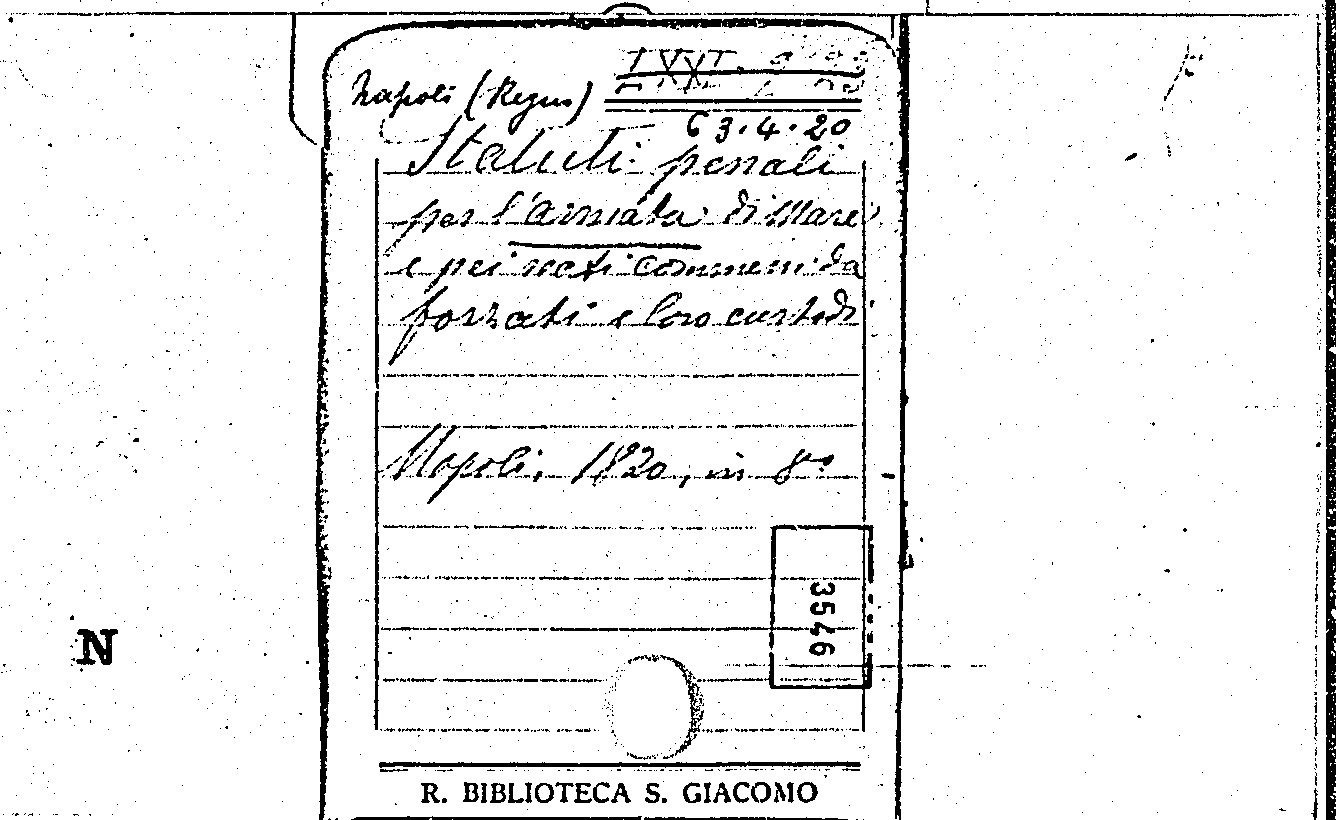 Napoli (Regno)
63.4.20
Statuti penali
per l'armata di Mare
e pei reati commessi da
forzati e loro custodi
Napoli, 1820, in 8º
3546
N
R. BIBLIOTECA S. GIACOMO